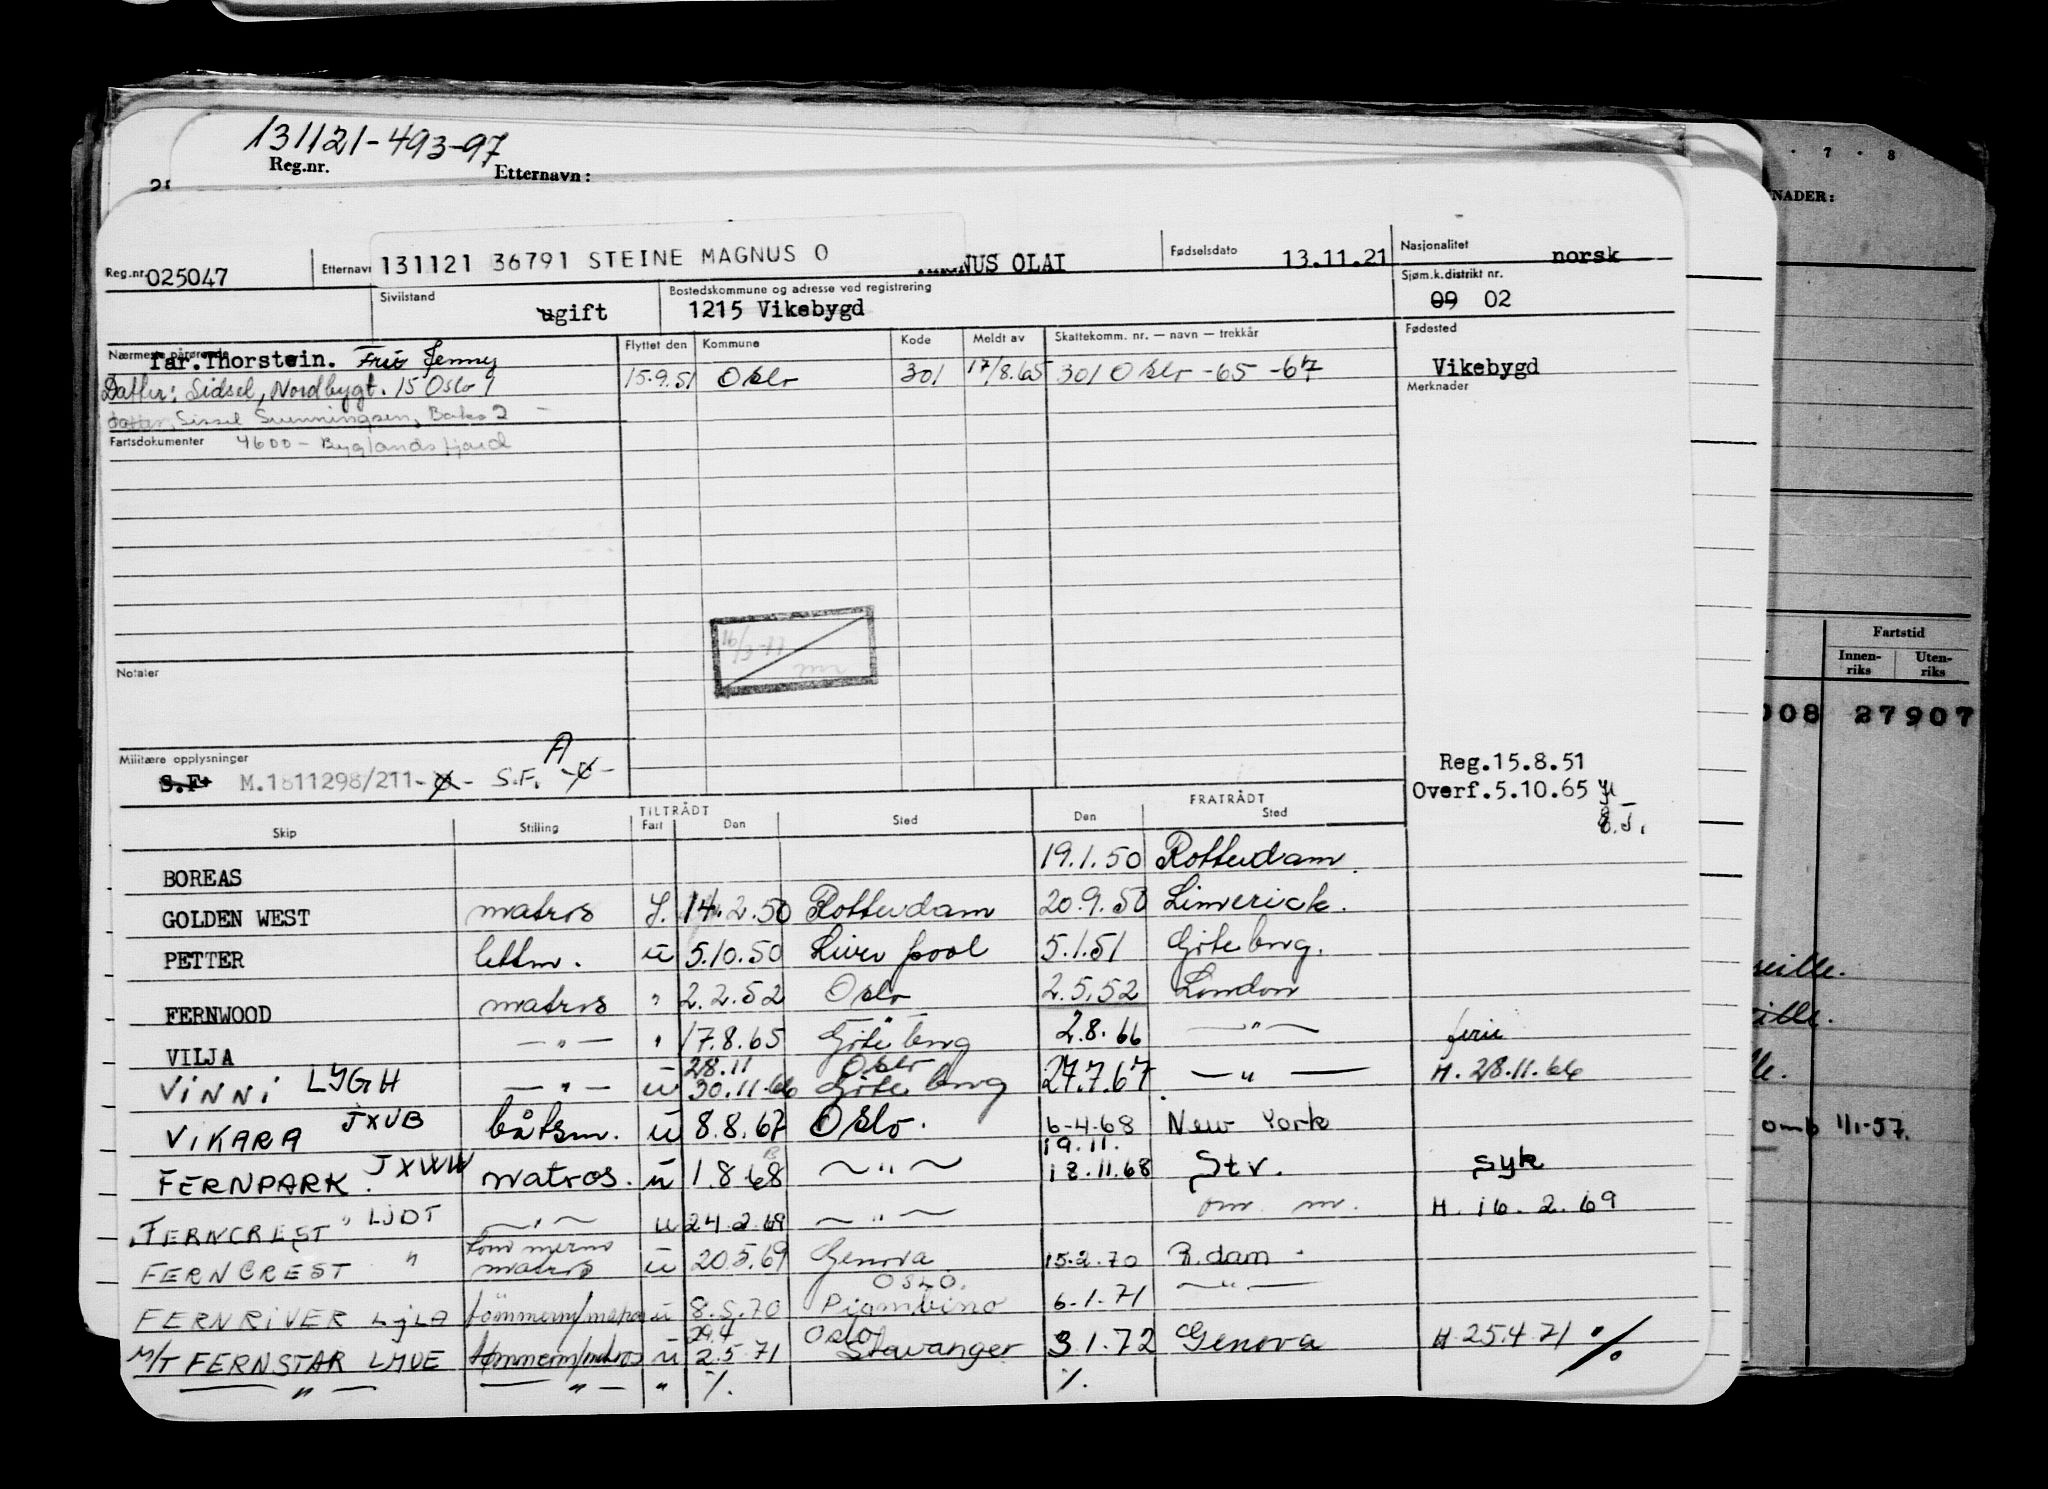 131121-493-97
Reg.nr. Etternavn:
Reg.nr. 025047 Etternavn 131121 36791 STEINE MAGNUS O NUS OLAI Fødselsdato 13.11.21 Nasjonalitet norsk
Sivilstand ugift Bostedskommune og adresse ved registrering 1215 Vikebygd Sjøm.k.distrikt nr. 09 02
Nærmeste pårørende Far.Thorstein. Frue Jenny Flyttet den Kommune Kode Meldt av Skattekomm. nr. — navn — trekkår Fødested
Datter: Sidsel, Nordbygt. 15 Oslo 9 15.9.51 Oslo 301 17/8.65 301 Oslo -65 -67 Vikebygd
Merknader
datter, Sissel Sunningsen, Boks 2
Fartsdokumenter 4600 - Byglandsfjord
16/3-77
Notater
Militære opplysninger A
S.F. M.1811298/211- S.F.
Reg.15.8.51
Overf.5.10.65
TILTRÅDT FRATRÅDT
Skip Stilling Fart Den Sted Den Sted
BOREAS 19.1.50 Rotterdam
GOLDEN WEST matros 14.2.50 Rotterdam 20.9.50 Limerick.
PETTER lettm. u 5.10.50 Liverpool 5.1.51 Göteborg.
FERNWOOD matros " 2.2.52 Oslo 2.5.52 London
VILJA — " — " 17.8.65 Göteborg 2.8.66 — " — ferie
28.11 Oslo
VINNI LJGH — " — u 30.11.66 Göteborg 27.7.67 — " — H. 28.11.66
VIKARA JXUB båtsm. u 8.8.67 Oslo. 6-4-68 New York
19.11.
FERNPARK. JXWW matros. u 1.8.68 — " — 18.11.68 Stv. syk
FERNCREST " LJDT — " — u 24.2.69 — " — om. m. H. 16.2.69
tømmerm
FERNCREST " matros u 20.5.69 Genova 15.2.70 R.dam
OSLO.
FERNRIVER LJLA tømmerm/matros u 8.5.70 Piombino 6.1.71 — " —
29.4 Oslo
M/T FERNSTAR LMUE tømmerm/matros u 2.5.71 Stavanger 3.1.72 Genova H 25.4.71 %
— " — — " — " %. %.
· 7 · 8
NADER:
Fartstid
Innen-riks Uten-riks
008 27907
omb 1/1-57.